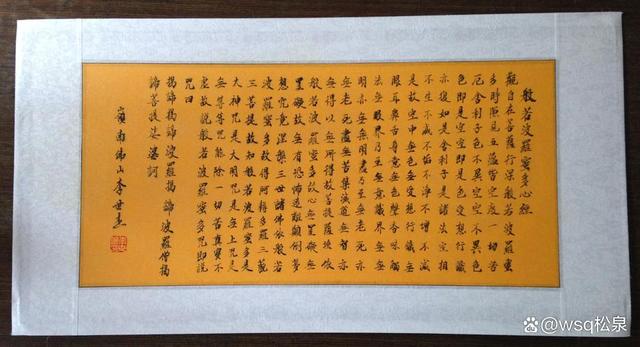 般若波羅蜜多心經
觀自在菩薩行深般若波羅蜜
多時照見五蘊皆空度一切苦
厄舍利子色不異空空不異色
色即是空空即是色受想行識
亦復如是舍利子是諸法空相
不生不滅不垢不淨不增不減
是故空中無色無受想行識無
眼耳鼻舌身意無色聲香味觸
法無眼界乃至無意識界無無
明亦無無明盡乃至無老死亦
無老死盡無苦集滅道無智亦
無得以無所得故菩提薩埵依
般若波羅蜜多故心無罣礙無
罣礙故無有恐怖遠離顛倒夢
想究竟涅槃三世諸佛依般若
波羅蜜多故得阿耨多羅三藐
三菩提故知般若波羅蜜多是
大神咒是大明咒是無上咒是
無等等咒能除一切苦真實不
虛故說般若波羅蜜多咒即說
咒曰
揭諦揭諦 波羅揭諦 波羅僧揭
諦菩提娑婆訶
嶺南佛山李世
@wsq松泉